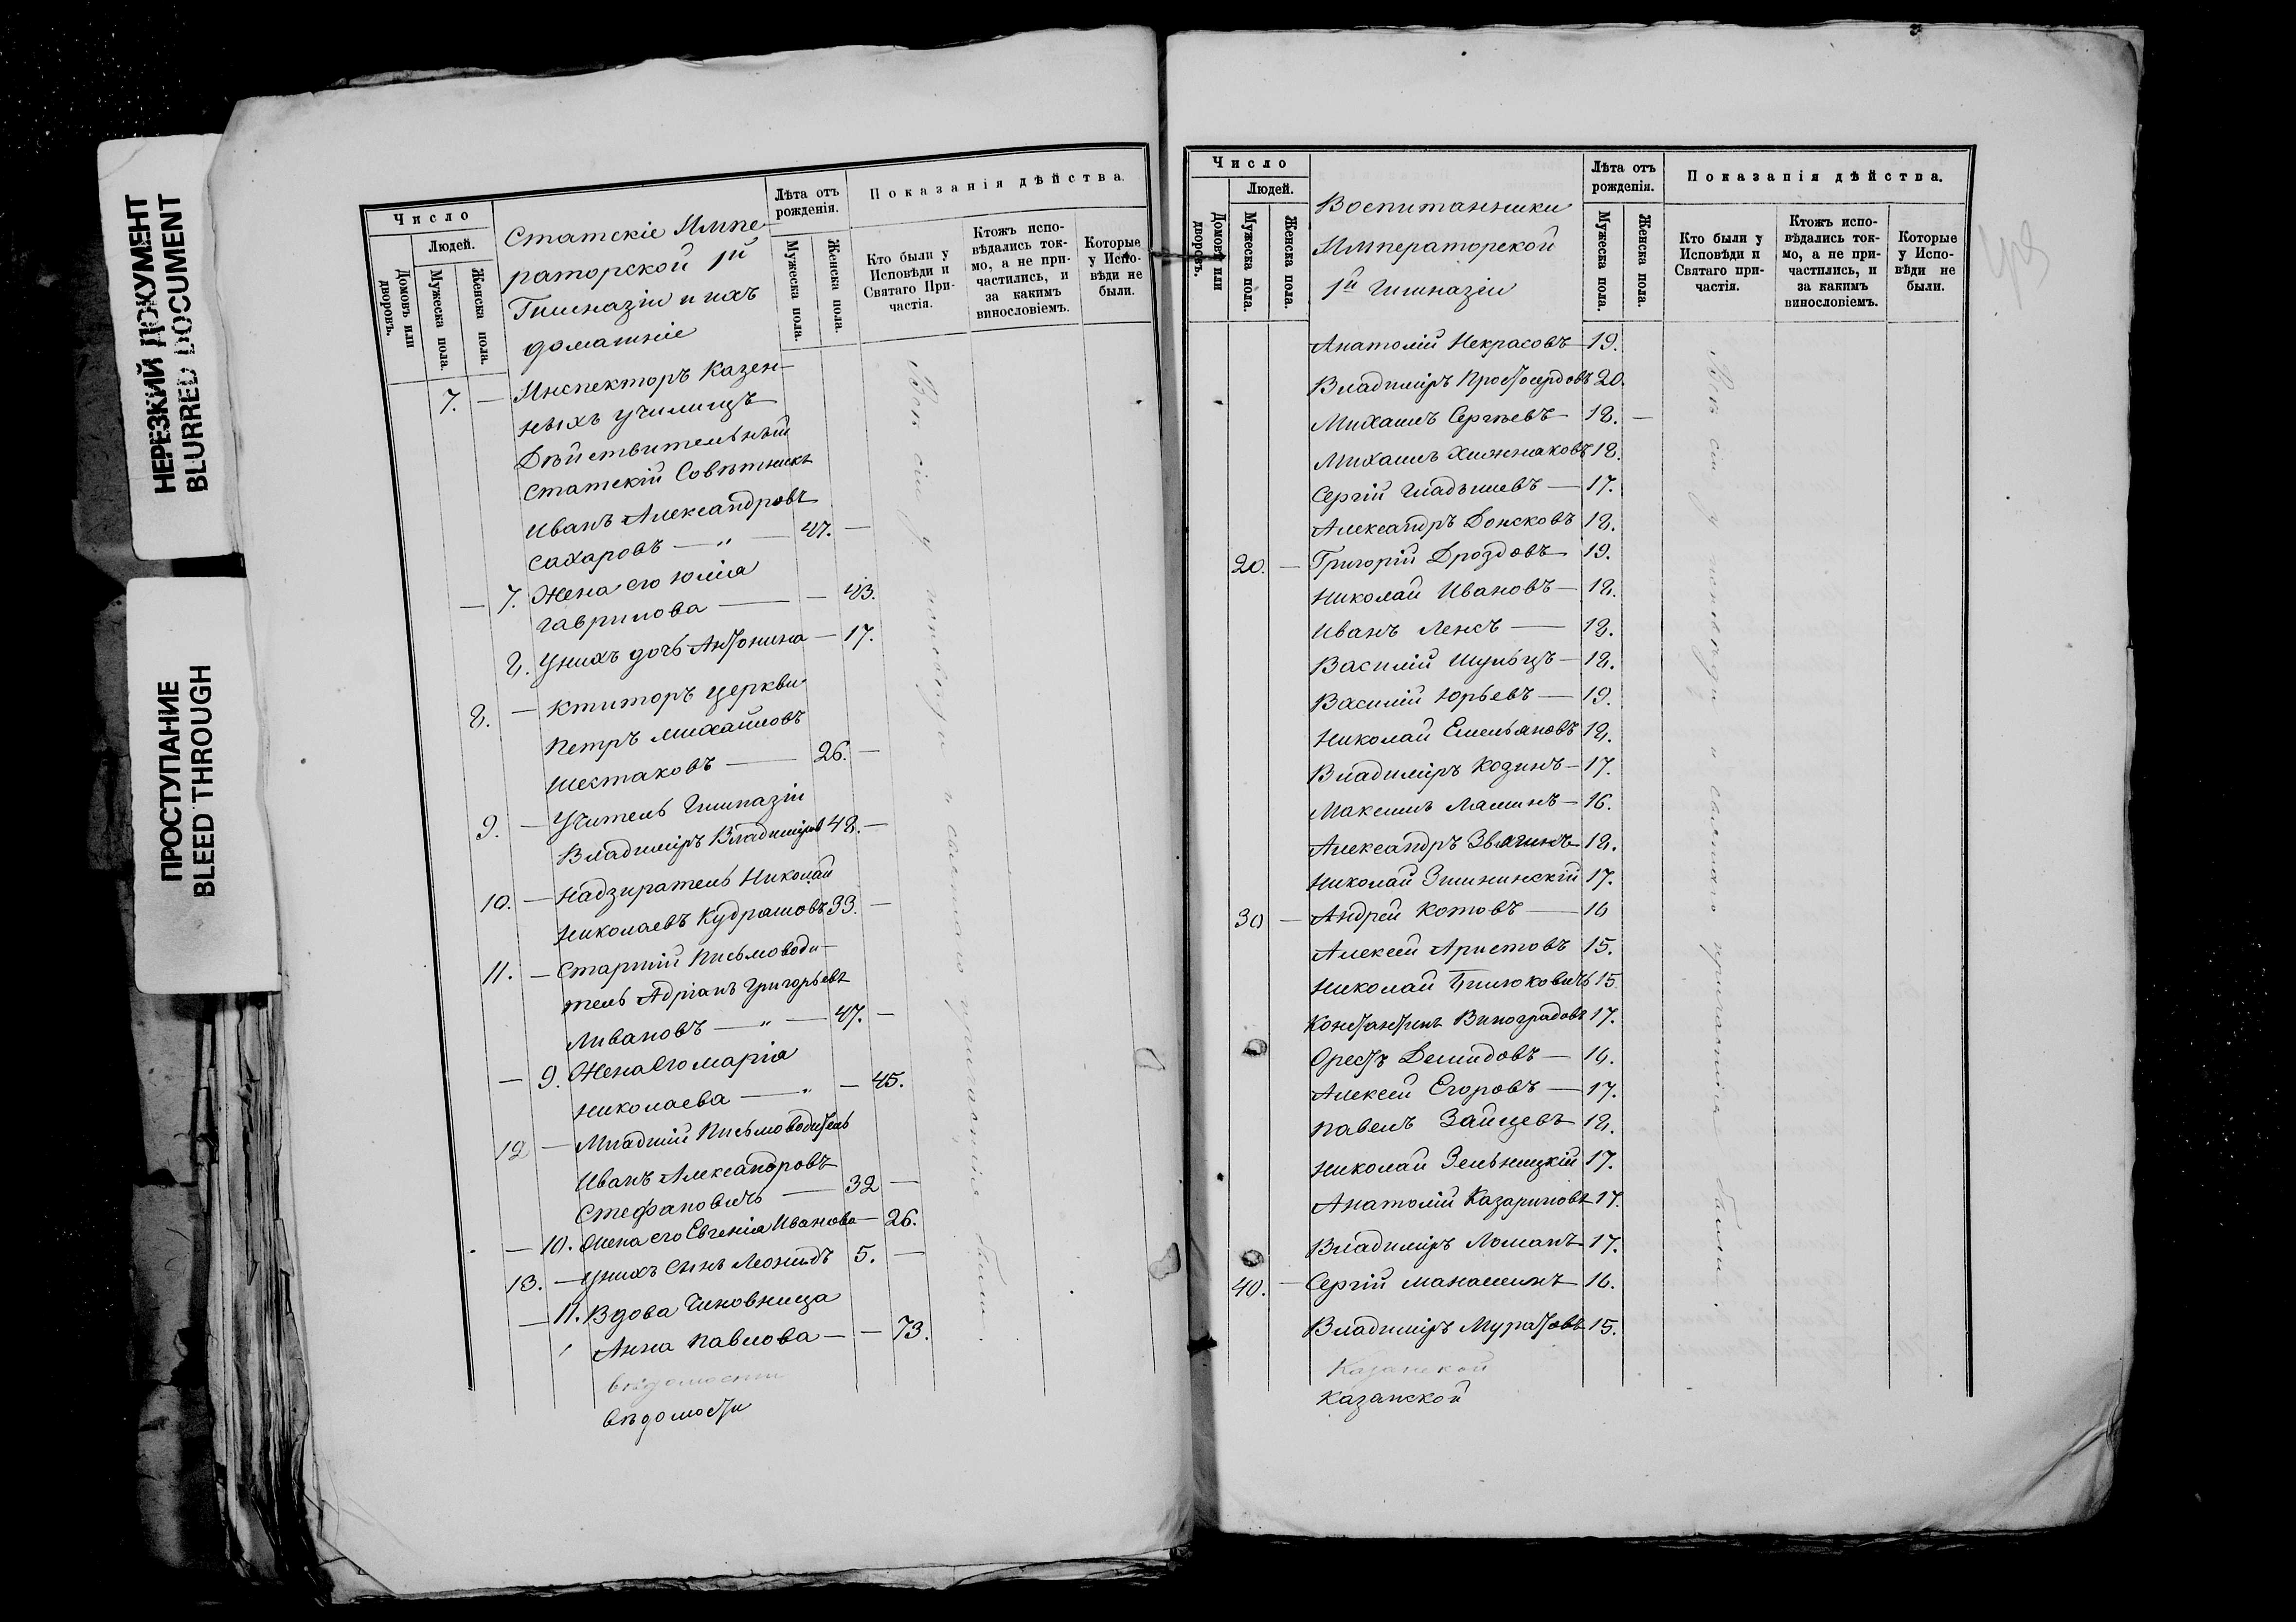 НЕРЕЗКИЙ ДОКУМЕНТ
BLURRED DOCUMENT
ПРОСТУПАНИЕ
BLEED THROUGH
Число
Людей.
Домовъ или дворовъ.
Мужеска пола.
Женска пола.
Статскіе Импе-
раторской 1й
Гимназіи и ихъ
домашніе
Лѣта отъ рожденія.
Мужеска пола.
Женска пола.
Показанія дѣйства.
Кто были у Исповѣди и Святаго При-частія.
Ктожъ испо-вѣдались ток-мо, а не при-частились, и за какимъ винословіемъ.
Которые у Испо-вѣди не были.
7. — Инспекторъ Казен-
ныхъ училищъ
Дѣйствительный
Статскій Совѣтникъ
Иванъ Александровъ
Сахаровъ — „ — 47. —
— 7. Жена его Юлія
Гаврилова — — 43.
8. У нихъ дочь Антонина — 17.
8. — Ктиторъ церкви
Петръ Михайловъ
Шестаковъ — 26. —
9. — Учитель Гимназіи
Владиміръ Владиміровъ 48. —
10. — Надзиратель Николай
Николаевъ Кудрашовъ 33. —
11. — Старшій Письмоводи-
тель Адріанъ Григорьевъ
Ливановъ — „ — 47. —
— 9. Жена его Марія
Николаева — „ — 45.
12 — Младшій Письмоводитель
Иванъ Александровъ
Стефановичъ — 32 —
— 10. Жена его Евгенія Иванова — 26.
13. — У нихъ Сынъ Леонидъ 5. —
— 11. Вдова Чиновница
Анна Павлова — — 73.
вѣдомости
вѣдомости
Всѣ сіи у исповѣди и святаго причастія были.
Число
Людей.
Домовъ или дворовъ.
Мужеска пола.
Женска пола.
Воспитанники
Императорской
1й Гимназіи
Лѣта отъ рожденія.
Мужеска пола.
Женска пола.
Показанія дѣйства.
Кто были у Исповѣди и Святаго при-частія.
Ктожъ испо-вѣдались ток-мо, а не при-частились, и за какимъ винословіемъ.
Которые у Испо-вѣди не были.
Анатолій Некрасовъ — 19.
Владиміръ Простосердовъ 20.
Михаилъ Сергѣевъ — 18. —
Михаилъ Хижняковъ 18.
Сергій Гладышевъ — 17.
Александръ Донсковъ 18.
20. — Григорій Дроздовъ — 19.
Николай Ивановъ — 18.
Иванъ Ленсъ — 18.
Василій Шульцъ — 18.
Василій Юрьевъ — 19.
Николай Емельяновъ 18.
Владиміръ Козинъ — 17.
Максимъ Ламинъ — 16.
Александръ Звягинъ — 18.
Николай Зимнинскій 17.
30 — Андрей Котовъ — 16
Алексѣй Аристовъ 15.
Николай 15.
Константинъ Виноградовъ 17.
Орестъ Демидовъ — 16.
Алексѣй Егоровъ — 17.
Павелъ Зайцевъ 18.
Николай Зельницкій 17.
Анатолій Казариновъ 17.
Владиміръ Ломанъ 17.
40. — Сергій Манасеинъ 16.
Владиміръ Муратовъ 15.
Казанской
Казанской
Всѣ сіи у исповѣди и святаго причастія были.